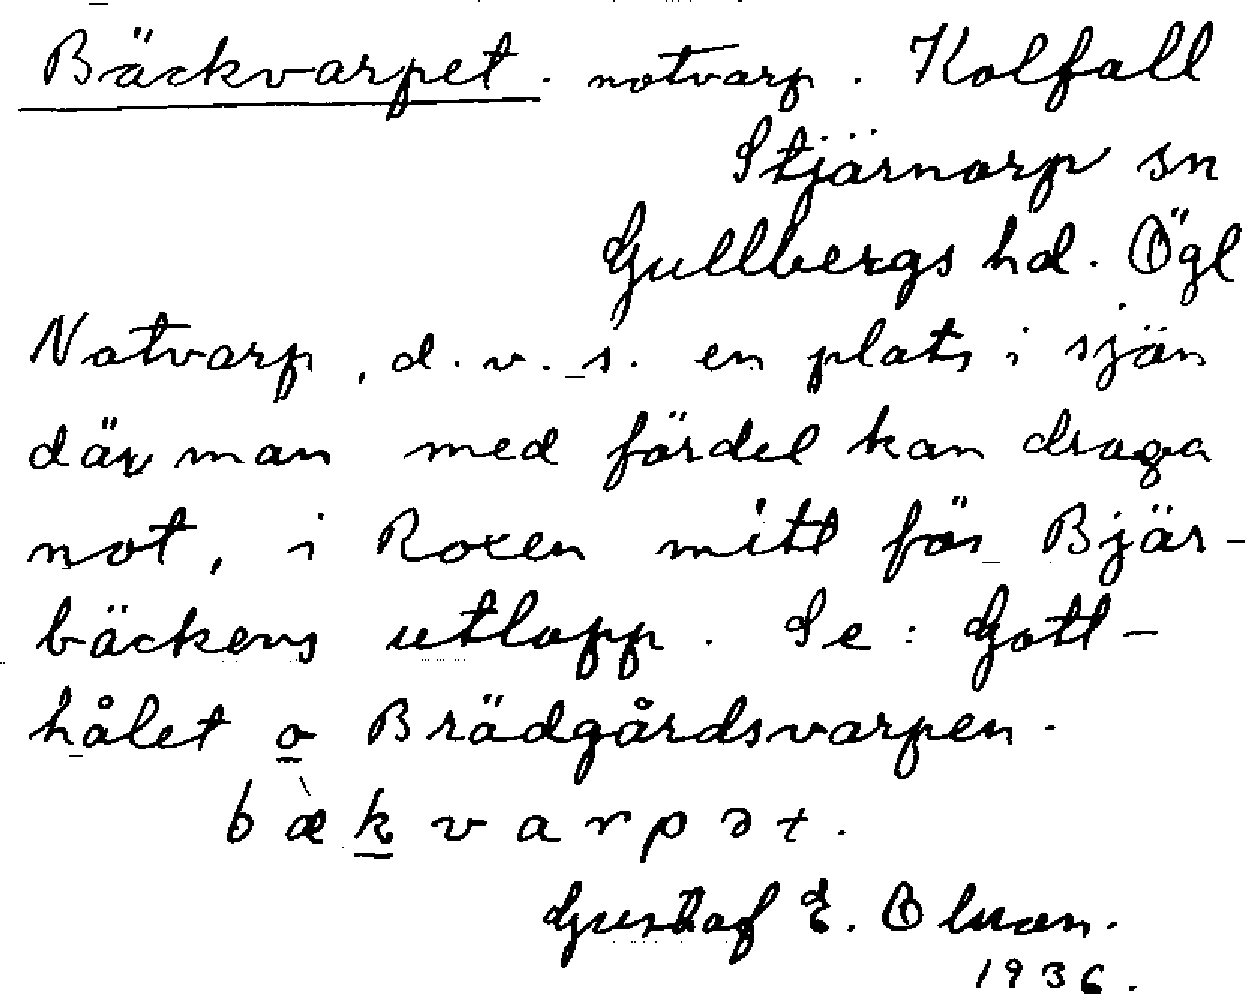 Bäckvarpet. notvarp. Kolfall
Stjärnorp sn
Gullbergs hd. Ögl
Notvarp, d.v.s. en plats i sjön
där man med fördel kan draga
not, i Roxen mitt för Bjär-
bäckens utlopp. Se: Gott-
hålet o Brädgårdsvarpen.
bæ̀kvarpət.
Gustaf E. Olsson.
1936.